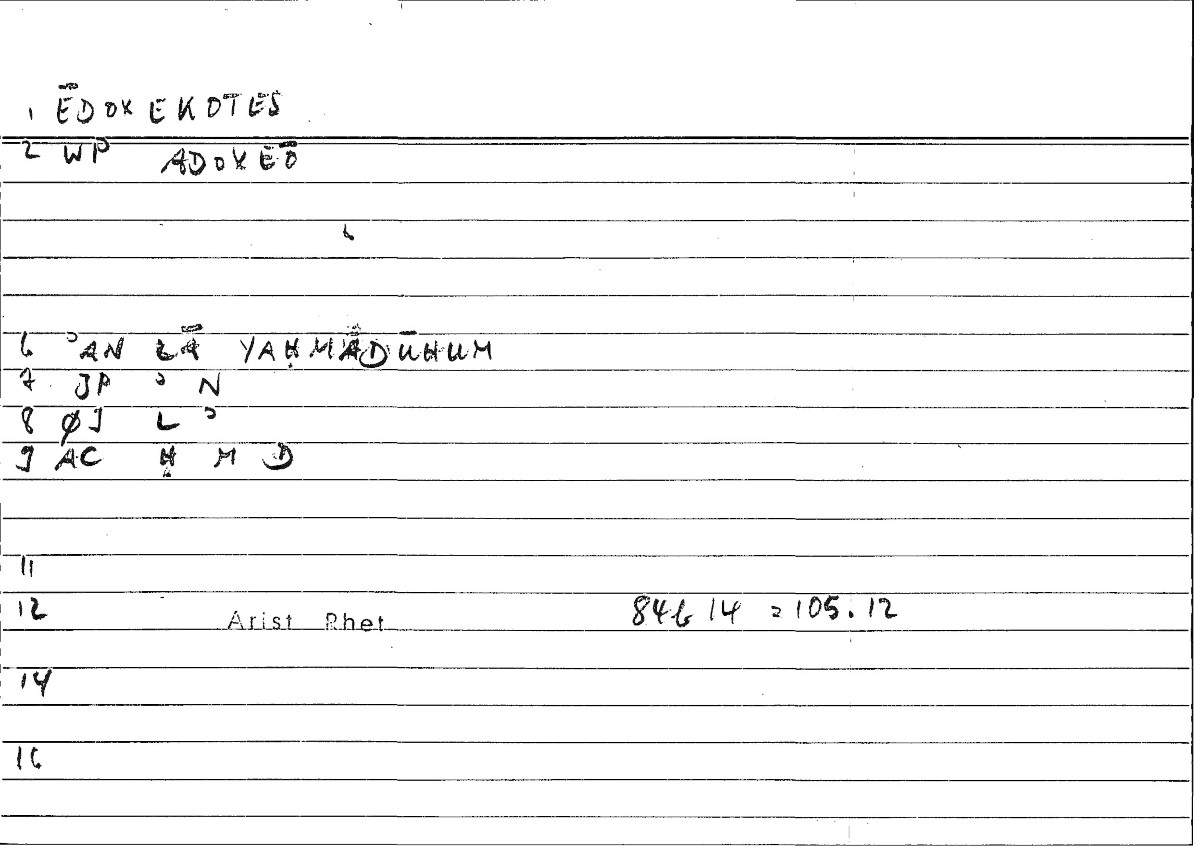 1 ĒDOXEKOTES
2 WP ADOXEŌ
6 ʾAN LĀ YAḤMĀDŪHUM
7 JP ʾ N
8 ØJ L ʾ
9 AC Ḥ M D
11
12 Arist Rhet 84b 14 = 105.12
14
16